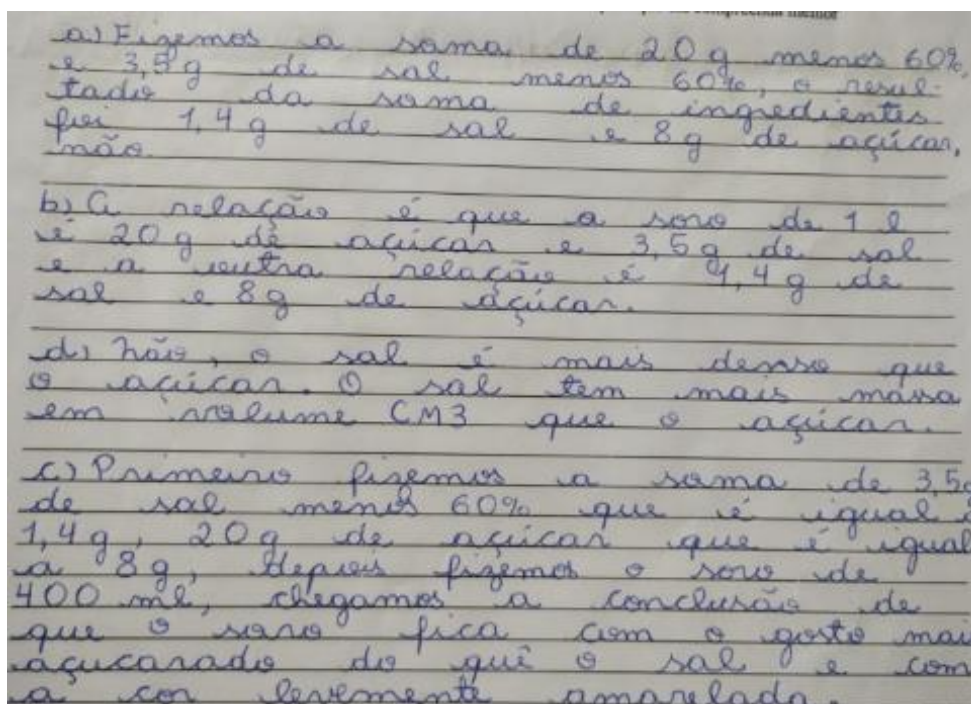 compreensão melhor
a) Fizemos a soma de 20 g menos 60%,
e 3,5 g de sal menos 60%, o resul-
tado da soma de ingredientes
foi 1,4 g de sal e 8 g de açúcar,
não.
b) A relação é que o soro de 1 l
é 20 g de açúcar e 3,5 g de sal
e a outra relação é 1,4 g de
sal e 8 g de açúcar.
d) não, o sal é mais denso que
o açúcar. O sal tem mais massa
em volume CM3 que o açúcar.
c) Primeiro fizemos a soma de 3,5g
de sal menos 60% que é igual a
1,4 g, 20 g de açúcar que é igual
a 8 g, depois fizemos o soro de
400 ml, chegamos a conclusão de
que o soro fica com o gosto mai
açucarado do quê o sal e com
a cor levemente amarelada.